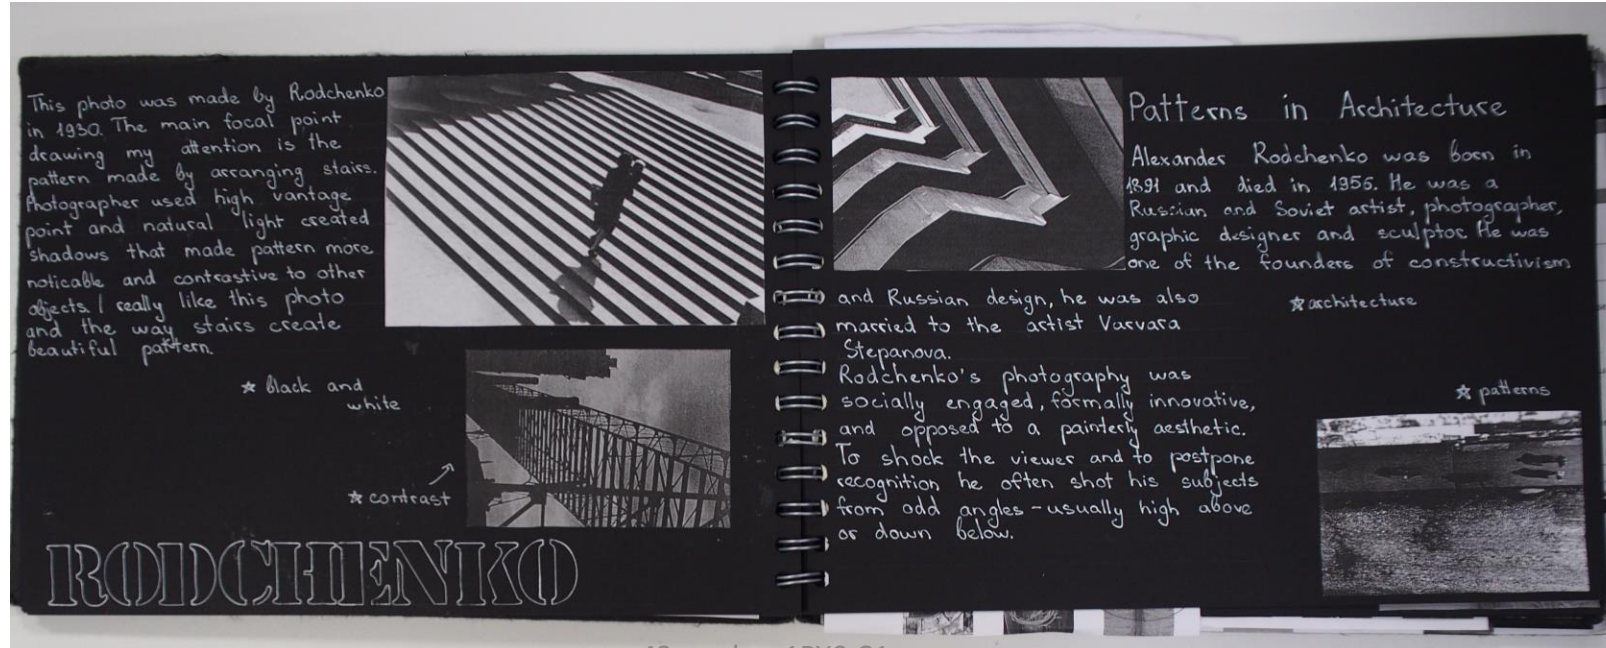 This photo was made by Rodchenko
in 1930. The main focal point
drawing my attention is the
pattern made by arranging stairs.
Photographer used high vantage
point and natural light created
shadows that made pattern more
noticable and contrastive to other
objects. I really like this photo
and the way stairs create
beautiful pattern.
☆ black and
white
☆ contrast
RODCHENKO
Patterns in Architecture
Alexander Rodchenko was born in
1891 and died in 1956. He was a
Russian and Soviet artist, photographer,
graphic designer and sculptor. He was
one of the founders of constructivism
and Russian design, he was also
married to the artist Varvara
Stepanova.
Rodchenko's photography was
socially engaged, formally innovative,
and opposed to a painterly aesthetic.
To shock the viewer and to postpone
recognition he often shot his subjects
from odd angles - usually high above
or down below.
☆ architecture
☆ patterns